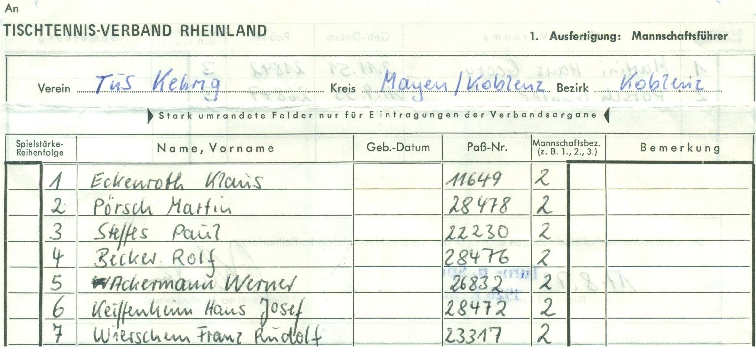 An
TISCHTENNIS-VERBAND RHEINLAND
1. Ausfertigung: Mannschaftsführer
Verein TuS Kehrig Kreis Mayen/Koblenz Bezirk Koblenz
Stark umrandete Felder nur für Eintragungen der Verbandsorgane
Spielstärke-Reihenfolge Name, Vorname Geb.-Datum Paß-Nr. Mannschaftsbez. (z. B. 1., 2., 3.) Bemerkung
1 Eckenroth Klaus 11649 2
2 Pörsch Martin 28478 2
3 Steffes Paul 22230 2
4 Becker Rolf 28476 2
5 Ackermann Werner 26832 2
6 Keiffenheim Hans Josef 28472 2
7 Wierschem Franz Rudolf 23317 2